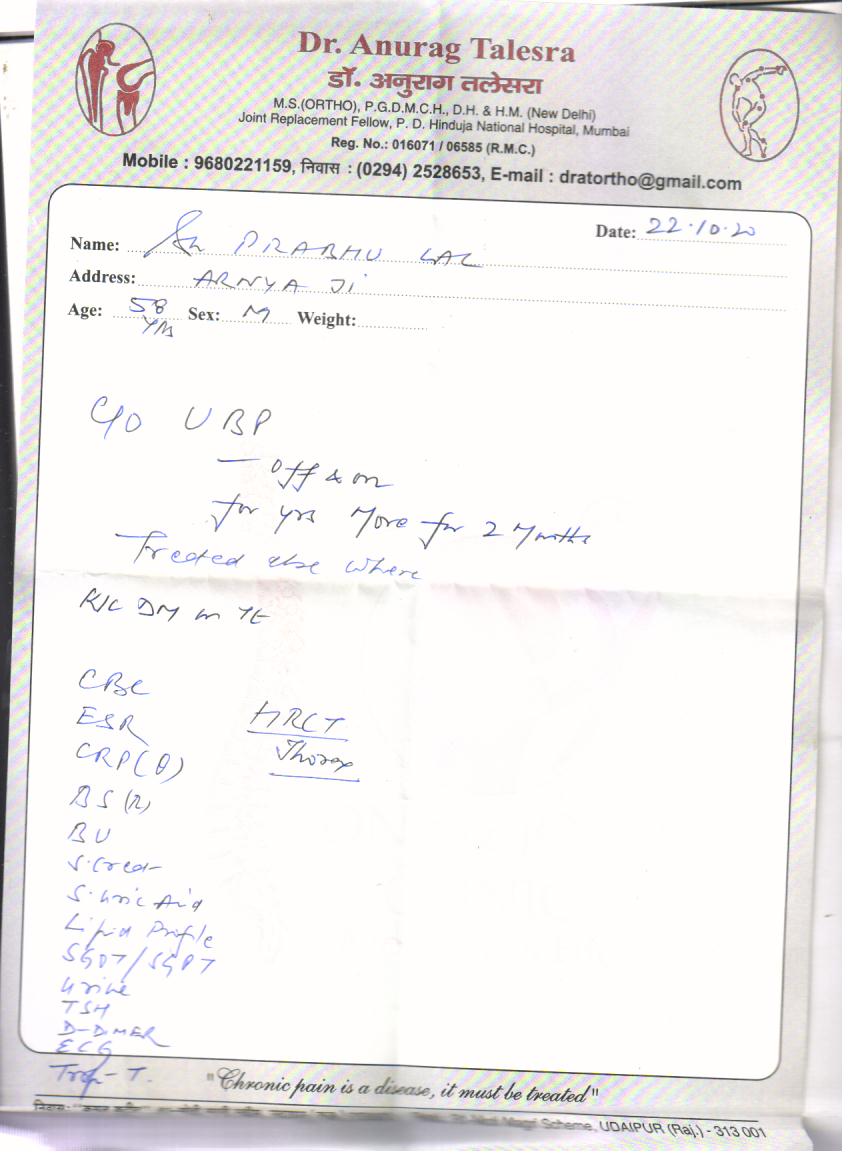 Dr. Anurag Talesra
डॉ. अनुराग तलेसरा
M.S.(ORTHO), P.G.D.M.C.H., D.H. & H.M. (New Delhi)
Joint Replacement Fellow, P. D. Hinduja National Hospital, Mumbai
Reg. No.: 016071 / 06585 (R.M.C.)
Mobile : 9680221159, निवास : (0294) 2528653, E-mail : dratortho@gmail.com
Date: 22.10.20
Name: PRABHU LAL
Address: ARNYA Ji
Age: 58 Yrs Sex: M Weight:
C/O UBP
— off & on
for yrs More for 2 Months
Treated else where
K/C DM on Tt
CBC
ESR HRCT
CRP(Q) Thorax
BS (R)
BU
S. Creat
S. Uric Acid
Lipid Profile
SGOT/SGPT
Urine
TSH
D-DIMER
ECG
Trop-T.
"Chronic pain is a disease, it must be treated"
Scheme, UDAIPUR (Raj.) - 313 001